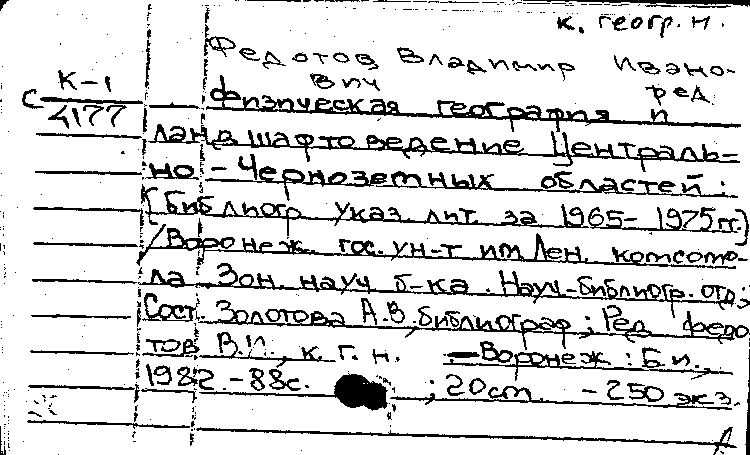 к. геогр. н.
Федотов Владимир Ивано-
вич ред
К-1
С 4177
Физическая география и
ландшафтоведение Централь-
но-Черноземных областей:
[Библиогр. указ. лит. за 1965-1975гг.]
/Воронеж. гос. ун-т им Лен. комсомо-
ла. Зон. науч б-ка. Науч-библиогр. отд;
Сост. Золотова А.В, библиограф; Ред Федо
тов В.И., к. г. н. —Воронеж: Б.и.,
1982 -88с. ; 20см. -250 экз.